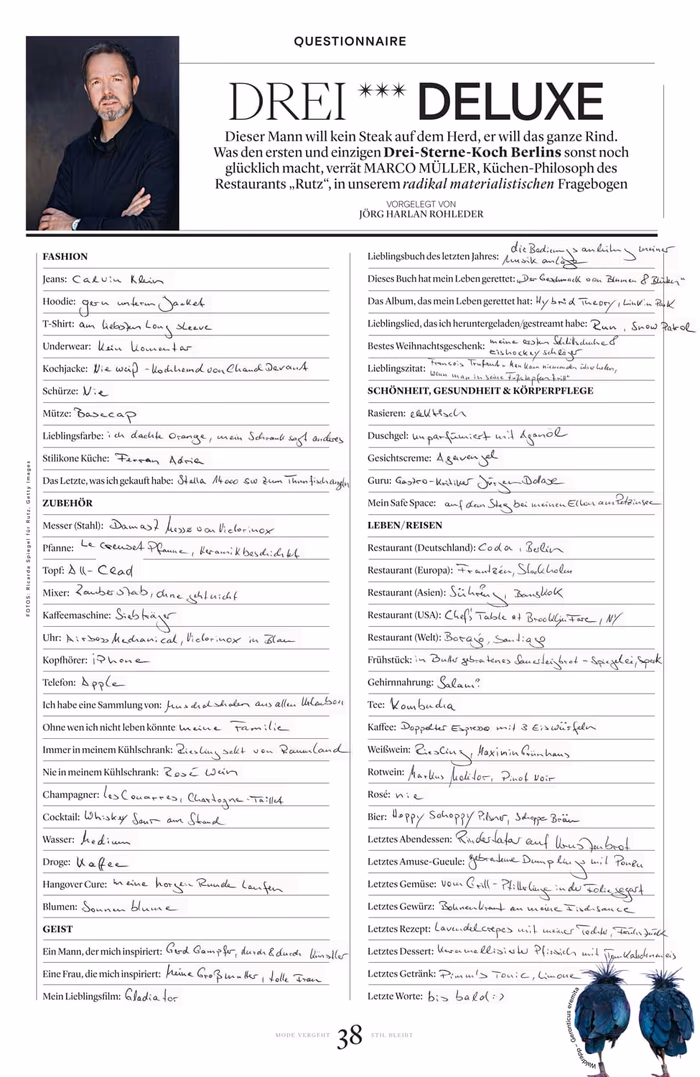 QUESTIONNAIRE
DREI *** DELUXE
Dieser Mann will kein Steak auf dem Herd, er will das ganze Rind.
Was den ersten und einzigen Drei-Sterne-Koch Berlins sonst noch
glücklich macht, verrät MARCO MÜLLER, Küchen-Philosoph des
Restaurants „Rutz“, in unserem radikal materialistischen Fragebogen
VORGELEGT VON
JÖRG HARLAN ROHLEDER
FOTOS: Ricarda Spiegel für Rutz, Getty Images
FASHION
Jeans: Calvin Klein
Hoodie: gern unterm Jacket
T-Shirt: am liebsten Long sleeve
Underwear: Kein Komentar
Kochjacke: Nie weiß - Kochhemd von Chaud Devant
Schürze: Nie
Mütze: Basecap
Lieblingsfarbe: ich dachte Orange, mein Schrank sagt anderes
Stilikone Küche: Ferran Adria
Das Letzte, was ich gekauft habe: Stella 14000 SW zum Thunfischangeln
ZUBEHÖR
Messer (Stahl): Damast Messe von Victorinox
Pfanne: Le Creuset Pfanne, Keramikbeschichtet
Topf: All-Clad
Mixer: Zauberstab, ohne geht nicht
Kaffeemaschine: Siebträger
Uhr: Airboss Mechanical, Victorinox in Blau
Kopfhörer: iPhone
Telefon: Apple
Ich habe eine Sammlung von: Muschelschalen aus allen Urlauben
Ohne wen ich nicht leben könnte meine Familie
Immer in meinem Kühlschrank: Rieslingsekt von Raumland
Nie in meinem Kühlschrank: Rosé Wein
Champagner: Les Couarres, Chartogne-Taillet
Cocktail: Whiskey Sour am Strand
Wasser: Medium
Droge: Kaffee
Hangover Cure: meine morgen Runde Laufen
Blumen: Sonnenblume
GEIST
Ein Mann, der mich inspiriert: Gerd Gampfer, durch & durch Künstler
Eine Frau, die mich inspiriert: Meine Großmutter, tolle Frau
Mein Lieblingsfilm: Gladiator
Lieblingsbuch des letzten Jahres: die Bedienungsanleitung meiner
Musik anlage
Dieses Buch hat mein Leben gerettet: „Der Geschmack von Blumen & Blüten“
Das Album, das mein Leben gerettet hat: Hybrid Theory, Linkin Park
Lieblingslied, das ich heruntergeladen/gestreamt habe: Run, Snow Patrol
Bestes Weihnachtsgeschenk: meine ersten Schlittschuhe &
eishockey schläger
Lieblingszitat: Francois Trufaut - Man kann niemanden überholen,
wenn man in seine Fußstapfen tritt“
SCHÖNHEIT, GESUNDHEIT & KÖRPERPFLEGE
Rasieren: elektrisch
Duschgel: unparfümiert mit Aganöl
Gesichtscreme: Agavengel
Guru: Gastro-Kritiker Jürgen Dollase
Mein Safe Space: auf dem Steg bei meinen Eltern am Petzinsee
LEBEN/REISEN
Restaurant (Deutschland): Coda, Berlin
Restaurant (Europa): Frantzén, Stockholm
Restaurant (Asien): Sühring, Bangkok
Restaurant (USA): Chef's Table at Brooklyn Fare, NY
Restaurant (Welt): Boragó, Santiago
Frühstück: in Butter gebratenes Sauerteigbrot - Spiegelei, Speck
Gehirnnahrung: Salami?
Tee: Kombucha
Kaffee: Doppelter Espresso mit 3 Eiswürfeln
Weißwein: Riesling, Maximin Grünhaus
Rotwein: Markus Molitor, Pinot Noir
Rosé: nie
Bier: Hoppy Schoppy Pilsner, Schoppe Bräu
Letztes Abendessen: Rindertatar auf
Letztes Amuse-Gueule: gebratene Dumplings mit Ponzu
Letztes Gemüse: vom Grill - Pfifferlinge in der Folie gegart
Letztes Gewürz: Bohnenkraut an meine Fischsauce
Letztes Rezept: Lavendelcrepes mit meiner Tochter,
Letztes Dessert: Karamellisierte Pfirsich mit Tonkabohneneis
Letztes Getränk: Pimm's Tonic, Limone
Letzte Worte: bis bald :)
Waldrapp – Geronticus eremita
MODE VERGEHT 38 STIL BLEIBT